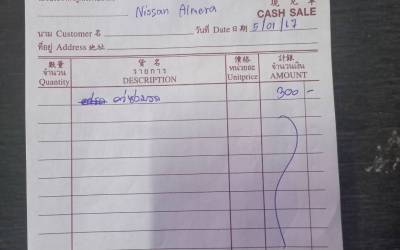 Nissan Almera
CASH SALE
นาม Customer 名
วันที่ Date 日期 5/01/17
ที่อยู่ Address 地址
數量 貨名 價格 計錄
จำนวน รายการ หน่วยละ จำนวนเงิน
Quantity DESCRIPTION Unitprice AMOUNT
300 -